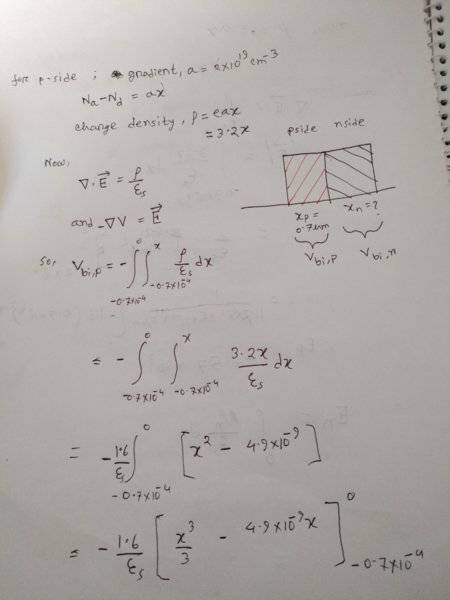 for p-side ; gradient, a = 2×10¹⁹ cm⁻³
Na-Nd = ax
charge density, ρ = eax
= 3.2x
pside nside
Now,
∇. E⃗ = ρ/εs
and -∇V = E⃗
xp = 0.7um
xn = ?
Vbi,p
Vbi,n
so, Vbi,p = - ∫_{-0.7×10⁻⁴}^{0} ∫_{-0.7×10⁻⁴}^{x} ρ/εs dx
= - ∫_{-0.7×10⁻⁴}^{0} ∫_{-0.7×10⁻⁴}^{x} 3.2x/εs dx
= -1.6/εs ∫_{-0.7×10⁻⁴}^{0} [x² - 4.9×10⁻⁹]
= -1.6/εs [x³/3 - 4.9×10⁻⁹x]_{-0.7×10⁻⁴}^{0}